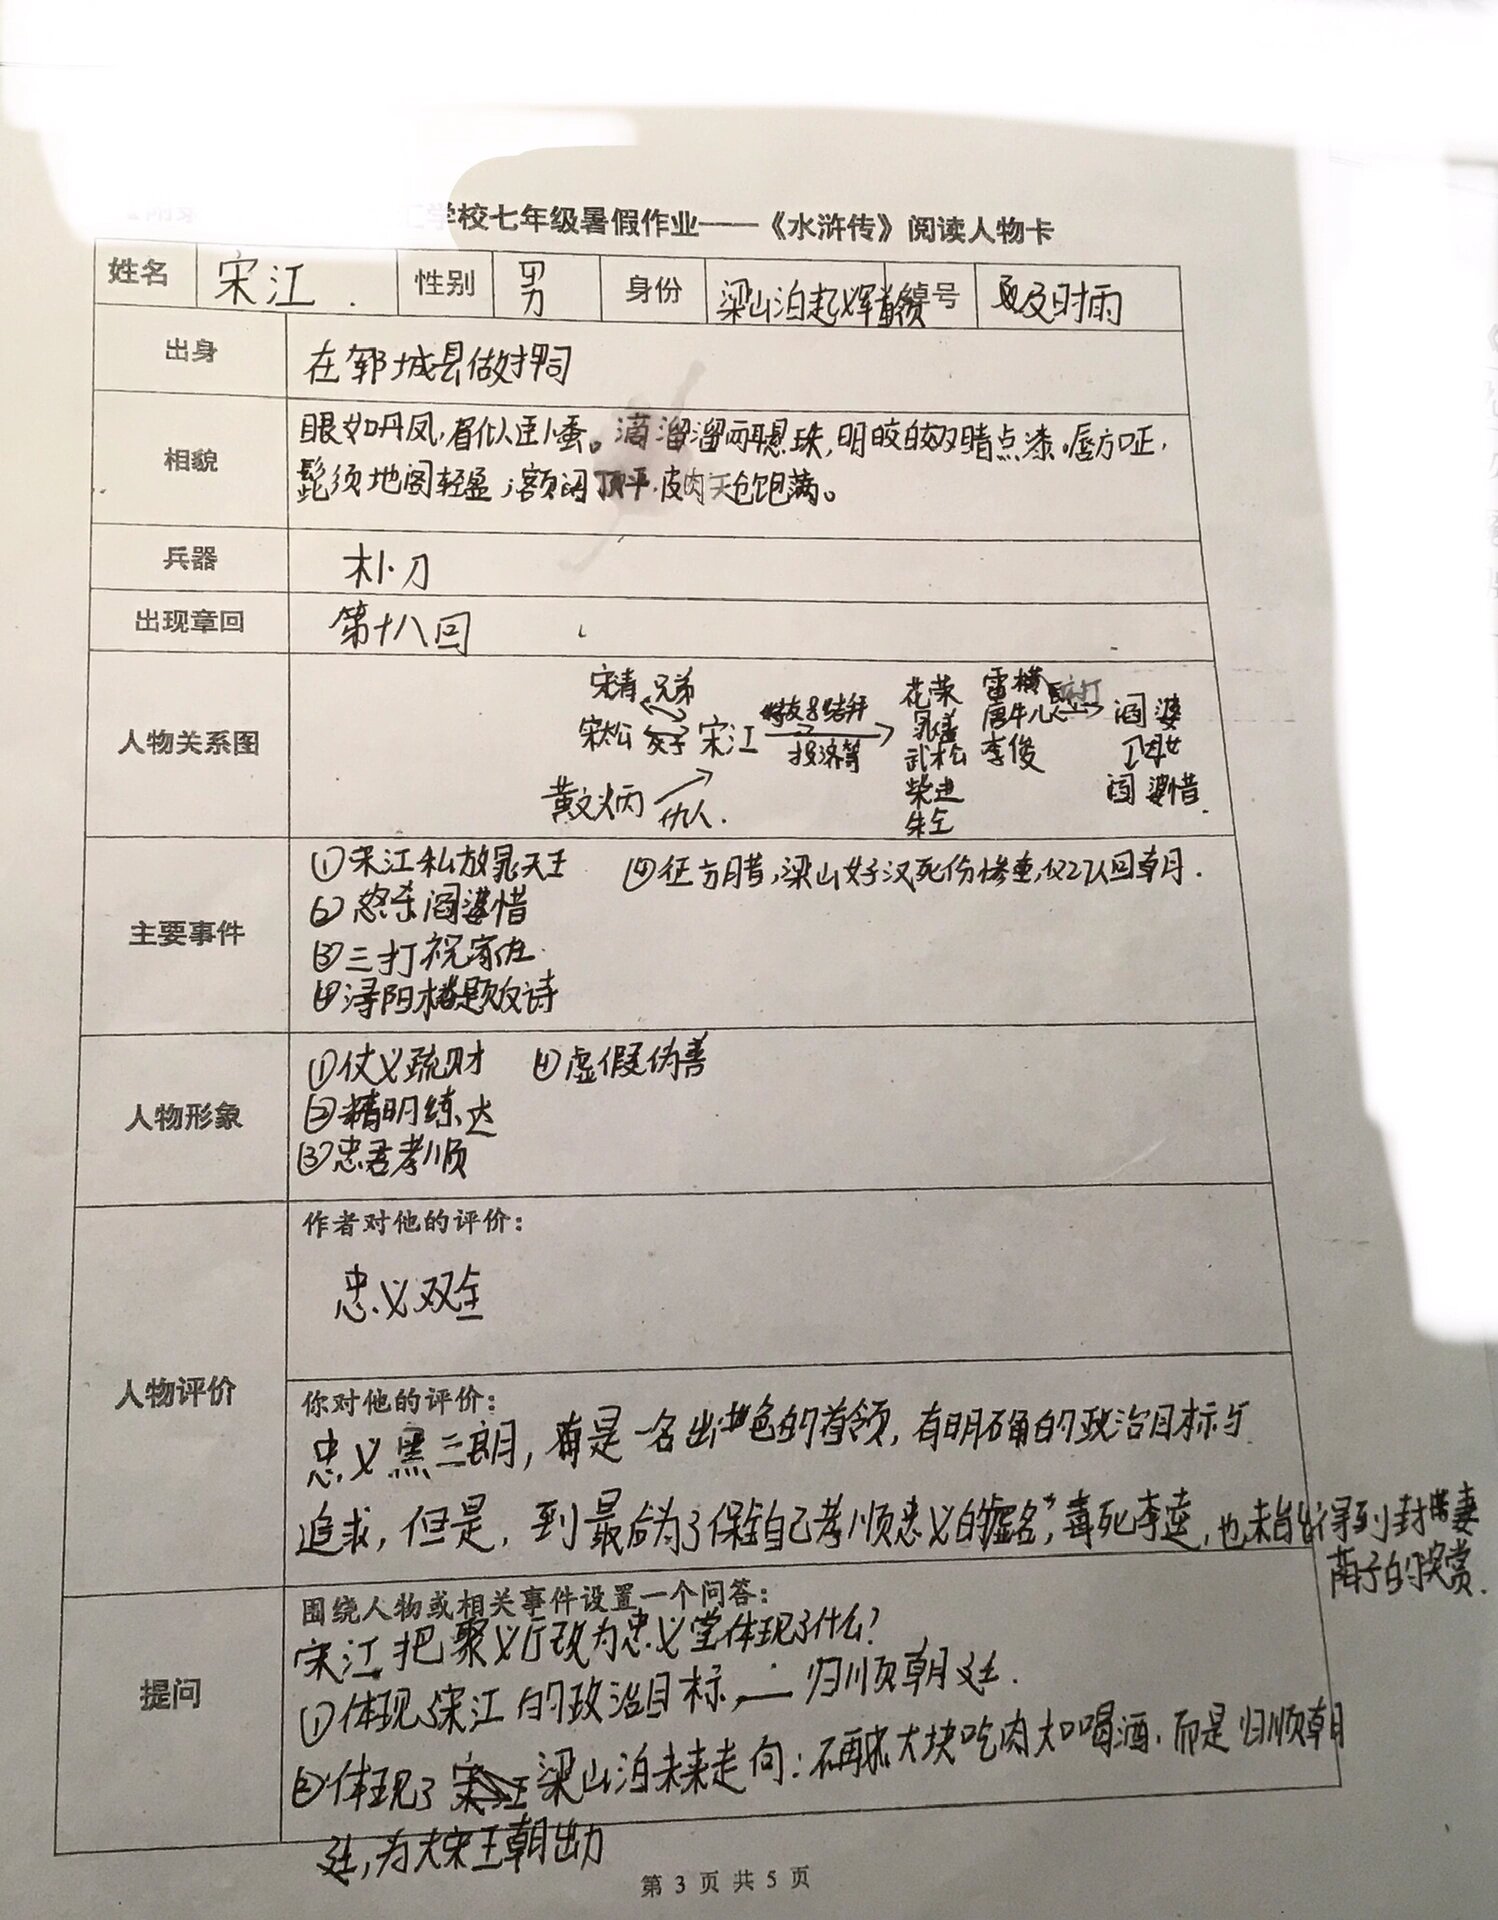 学校七年级暑假作业——《水浒传》阅读人物卡
姓名 宋江 性别 男 身份 梁山泊起义军首领 绰号 及时雨
出身 在郓城县做押司
相貌 眼如丹凤，眉似卧蚕。滴溜溜两耳悬珠，明皎皎双睛点漆。唇方口正，
髭须地阁轻盈；额阔顶平，皮肉天仓饱满。
兵器 朴刀
出现章回 第十八回
人物关系图
宋清 兄弟
宋江
好友 结拜
投济等
花荣
晁盖
武松
柴进
朱仝
雷横
唐牛儿
李俊
阎婆
母女
阎婆惜
黄文炳 仇人
主要事件
①宋江私放晁天王
②怒杀阎婆惜
③三打祝家庄
④浔阳楼题反诗
征方腊，梁山好汉死伤惨重，仅27人回朝
人物形象
①仗义疏财 ④虚假伪善
②精明练达
③忠君孝顺
人物评价
作者对他的评价：
忠义双全
你对他的评价：
忠义黑三郎，是一名出色的首领，有明确的政治目标与
追求，但是，到最后为了保全自己孝顺忠义的“虚名”，毒死李逵，也未能得到封妻
荫子的奖赏.
提问
围绕人物或相关事件设置一个问答：
宋江把聚义厅改为忠义堂体现了什么？
①体现了宋江的政治目标，——归顺朝廷.
②体现了梁山泊未来走向：不再求大块吃肉大口喝酒，而是归顺朝
廷，为大宋王朝出力
第 3 页 共 5 页